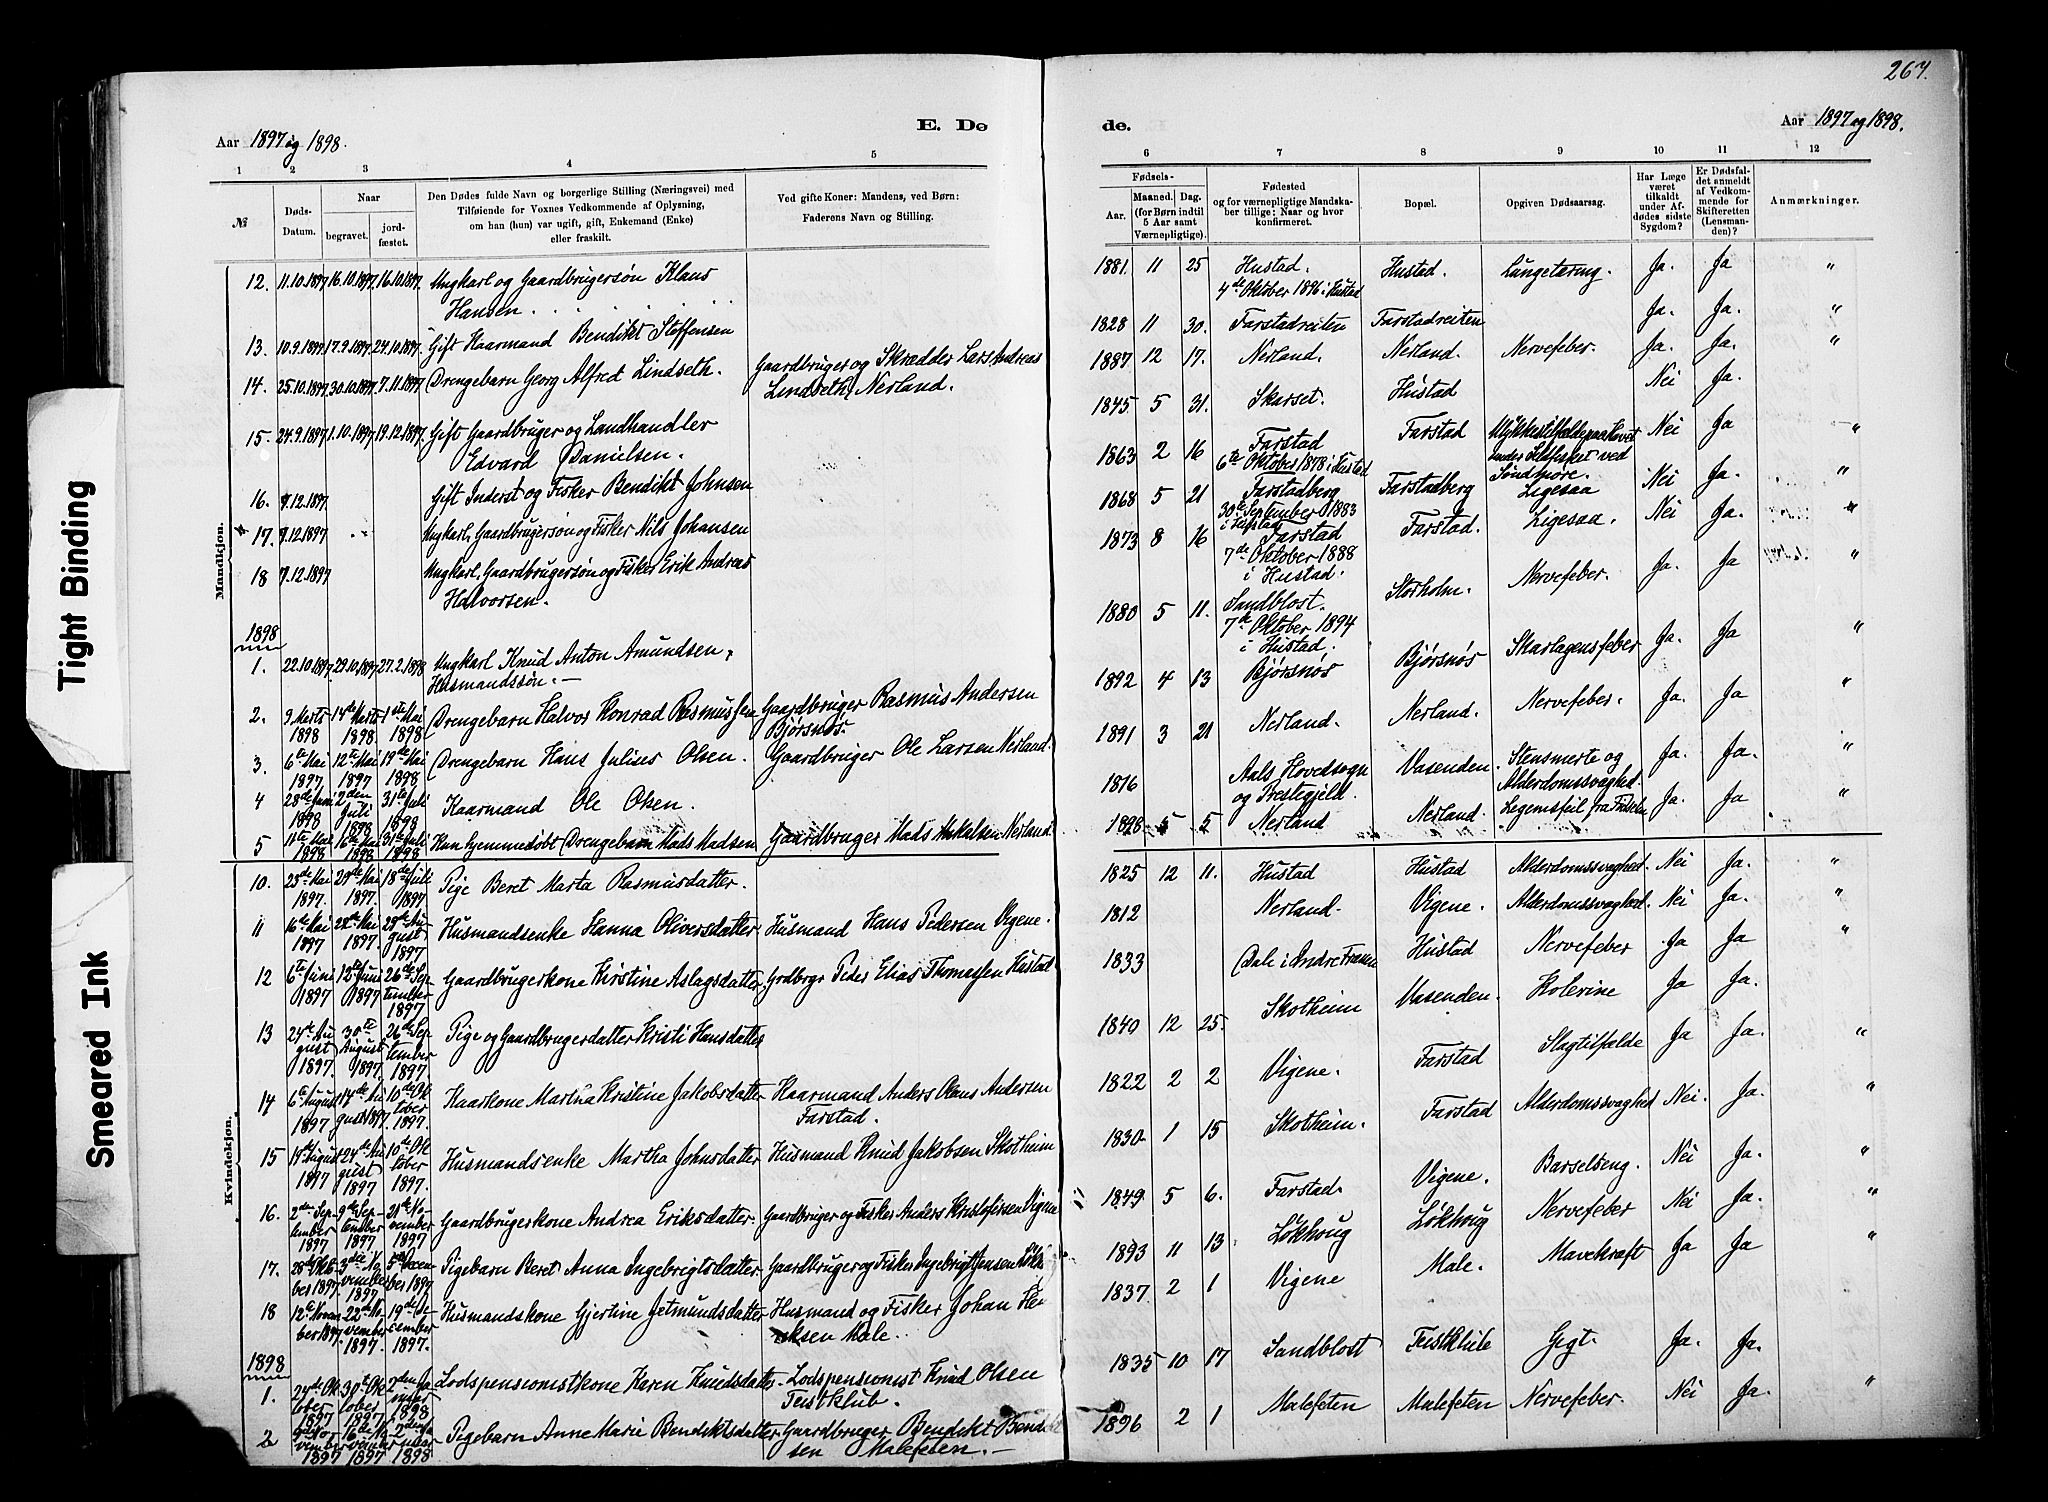 267.
Aar 1897 og 1898.
E. Dø
de.
Aar 1897 og 1898.
1 2 3 4 5
6 7 8 9 10 11 12
№
Døds-Datum.
Naar
begravet.
jord-fæstet.
Den Dødes fulde Navn og borgerlige Stilling (Næringsvei) med
Tilføiende for Voxnes Vedkommende af Oplysning,
om han (hun) var ugift, gift, Enkemand (Enke)
eller fraskilt.
Ved gifte Koner: Mandens, ved Børn:
Faderens Navn og Stilling.
Fødsels-
Aar.
Maaned. Dag.
(for Børn indtil
5 Aar samt
Værnepligtige).
Fødested
og for værnepligtige Mandska-
ber tillige: Naar og hvor
konfirmeret.
Bopæl.
Opgiven Dødsaarsag.
Har Læge
været
tilkaldt
under Af-
dødes sidste
Sygdom?
Er Dødsfal-
det anmeldt
af Vedkom-
mende for
Skifteretten
(Lensman-
den)?
Anmærkninger.
Mandkjøn.
12. 11.10.1897 16.10.1897 16.10.1897 Ungkarl og Gaardbrugersøn Klaus
Hansen
1881. 11 25 Hustad. Hustad. Lungetæring. Ja. Ja "
4de Oktober 1896 i Hustad
13. 10.9.1897 17.9.1897 24.10.1897 Gift Kaarmand Bendikt Steffensen
1828 11 30. Farstadreiten Farstadreiten Ja. Ja. "
14. 25.10.1897 30.10.1897 7.11.1897 Drengebarn Georg Alfred Lindseth. Gaardbruger og Skrædder Lars Andreas
Lindseth, Nerland.
1887 12 17. Nerland. Nerland. Nervefeber. Ja. Ja. "
15. 24.9.1897 1.10.1897 19.12.1897 Gift Gaardbruger og Landhandler
Edvard Danielsen.
1845 5 31. Skarset. Hustad Nei Ja.
16. 7.12.1897 Gift Inderst og Fisker Bendikt Johnsen
1863 2 16 Farstad Farstad Ulykkestilfælde paa Havet Nei Ja "
6te Oktober 1878 i Hustad
under Sildfisket ved
Søndmøre.
17. 7.12.1897 Ungkarl, Gaardbrugersøn og Fisker Nils Johansen
1868 5 21 Farstadberg Farstadberg Ligesaa Nei Ja. "
30te September 1883
18 7.12.1897 Ungkarl, Gaardbrugersøn og Fisker Erik Andreas
Halvorsen.
1873 8 16 Farstad Farstad. Ligesaa. Nei Ja. "
7de Oktober 1888
i Hustad.
1898
1. 22.10.1897 29.10.1897 27.2.1898 Ungkarl Knud Anton Amundsen,
Husmandssøn.
1880 5 11. Sandblost. Storholm. Nervefeber. Ja. Ja "
7de Oktober 1894
i Hustad.
2. 9 Marts 1898 14de Marts 1898. 1ste Mai 1898 Drengebarn Halvor Konrad Rasmussen Gaardbruger Rasmus Andersen
Bjørsnøs.
1892 4 13 Bjørsnøs Bjørsnøs Skarlagensfeber Ja. Ja. "
3. 6te Mai 1897 12te Mai 1897 19de Mai 1898 Drengebarn Hans Julius Olsen. Gaardbruger Ole Larsen Nerland.
1891 3 21 Nerland. Nerland. Nervefeber. Ja. Ja "
4 28de Juni 1898 2den Juli 1898 31te Juli 1898 Kaarmand Ole Olsen.
1816 Aals Hovedsogn Vasenden. Stensmerte og Ja. Ja. "
og Prestegjeld. Alderdomssvaghed.
5 11te Mai 1898 16de Mai 1898 31te Juli 1898 Kun hjemmedøbt Drengebarn Mads Madsen Gaardbruger Mads Mikalsen Nerland.
1898 5 5 Nerland Nerland. Legemsfeil fra Fødselen Ja. Ja "
Kvindekjøn.
10. 23de Mai 1897. 29de Mai 1897. 18de Juli 1897 Pige Beret Marta Rasmusdatter.
1825 12 11. Hustad Hustad Alderdomssvaghed. Nei Ja. "
11 16de Mai 1897 22de Mai 1897. 28de August 1897 Husmandsenke Hanna Oliversdatter Husmand Hans Pedersen Vigene.
1812 Nerland. Vigene. Alderdomssvaghed. Nei Ja. "
12 6te Juni 1897 12te Juni 1897 26de September 1897 Gaardbrugerkone Kirstine Aslagsdatter Grdbrgr Peder Elias Thomassen Hustad
1833 Dale i Indre Frænen Hustad Nervefeber Ja Ja "
13 24de August 1897. 30te August 1897. 26de September 1897 Pige og Gaardbrugerdatter Kristi Hansdatter
1840 12 25. Skotheim Vasenden. Kolerine Ja Ja.
14 6te August 1897 14de August 1897 10de Oktober 1897. Kaarkone Martha Kristine Jakobsdatter Kaarmand Anders Olaus Andersen
Farstad.
1822 2 2 Vigene. Farstad Slagtilfælde Ja Ja. "
15 19de August 1897 24de August 1897 10de Oktober 1897. Husmandsenke Martha Johnsdatter Husmand Knud Jakobsen Skotheim
1830 1 15 Skotheim. Farstad Alderdomssvaghed Nei. Ja. "
16. 2den September 1897 9de September 1897 21de November 1897 Gaardbrugerkone Andrea Eriksdatter. Gaardbruger og Fisker Anders Kristofersen Vigene
1849 5 6. Farstad. Vigene. Barselseng. Nei Ja. "
17. 28de Oktober 1897 3die November 1897 5te December 1897 Pigebarn Beret Anna Ingebrigtsdatter Gaardbruger og Fisker Ingebrigt Jensen
1893 11 13 Løkhaug Løkhaug Nervefeber Nei Ja. "
18 12te November 1897. 22de November 1897. 19de December 1897. Husmandskone Gjertine Jetmundsdatter Husmand og Fisker Johan
Male.
1837 2 1 Vigene Male. Mavekræft Ja Ja "
1898
1. 24de Oktober 1897 30te Oktober 1897 2den Januar 1898 Lodspensionistkone Karen Knudsdatter. Lodspensionist Knud Olsen
Teistklub.
1835 10 17 Sandblost Teistklub Gigt. Ja. Ja.
2 9de November 1897 16de November 1897 2den Januar 1898 Pigebarn Anne Marie Bendiktsdatter Gaardbruger Bendikt Bendikt
sen Malefeten.
1896 2 1 Malefeten Malefeten Nervefeber. Nei Ja. "
Tight Binding
Smeared Ink